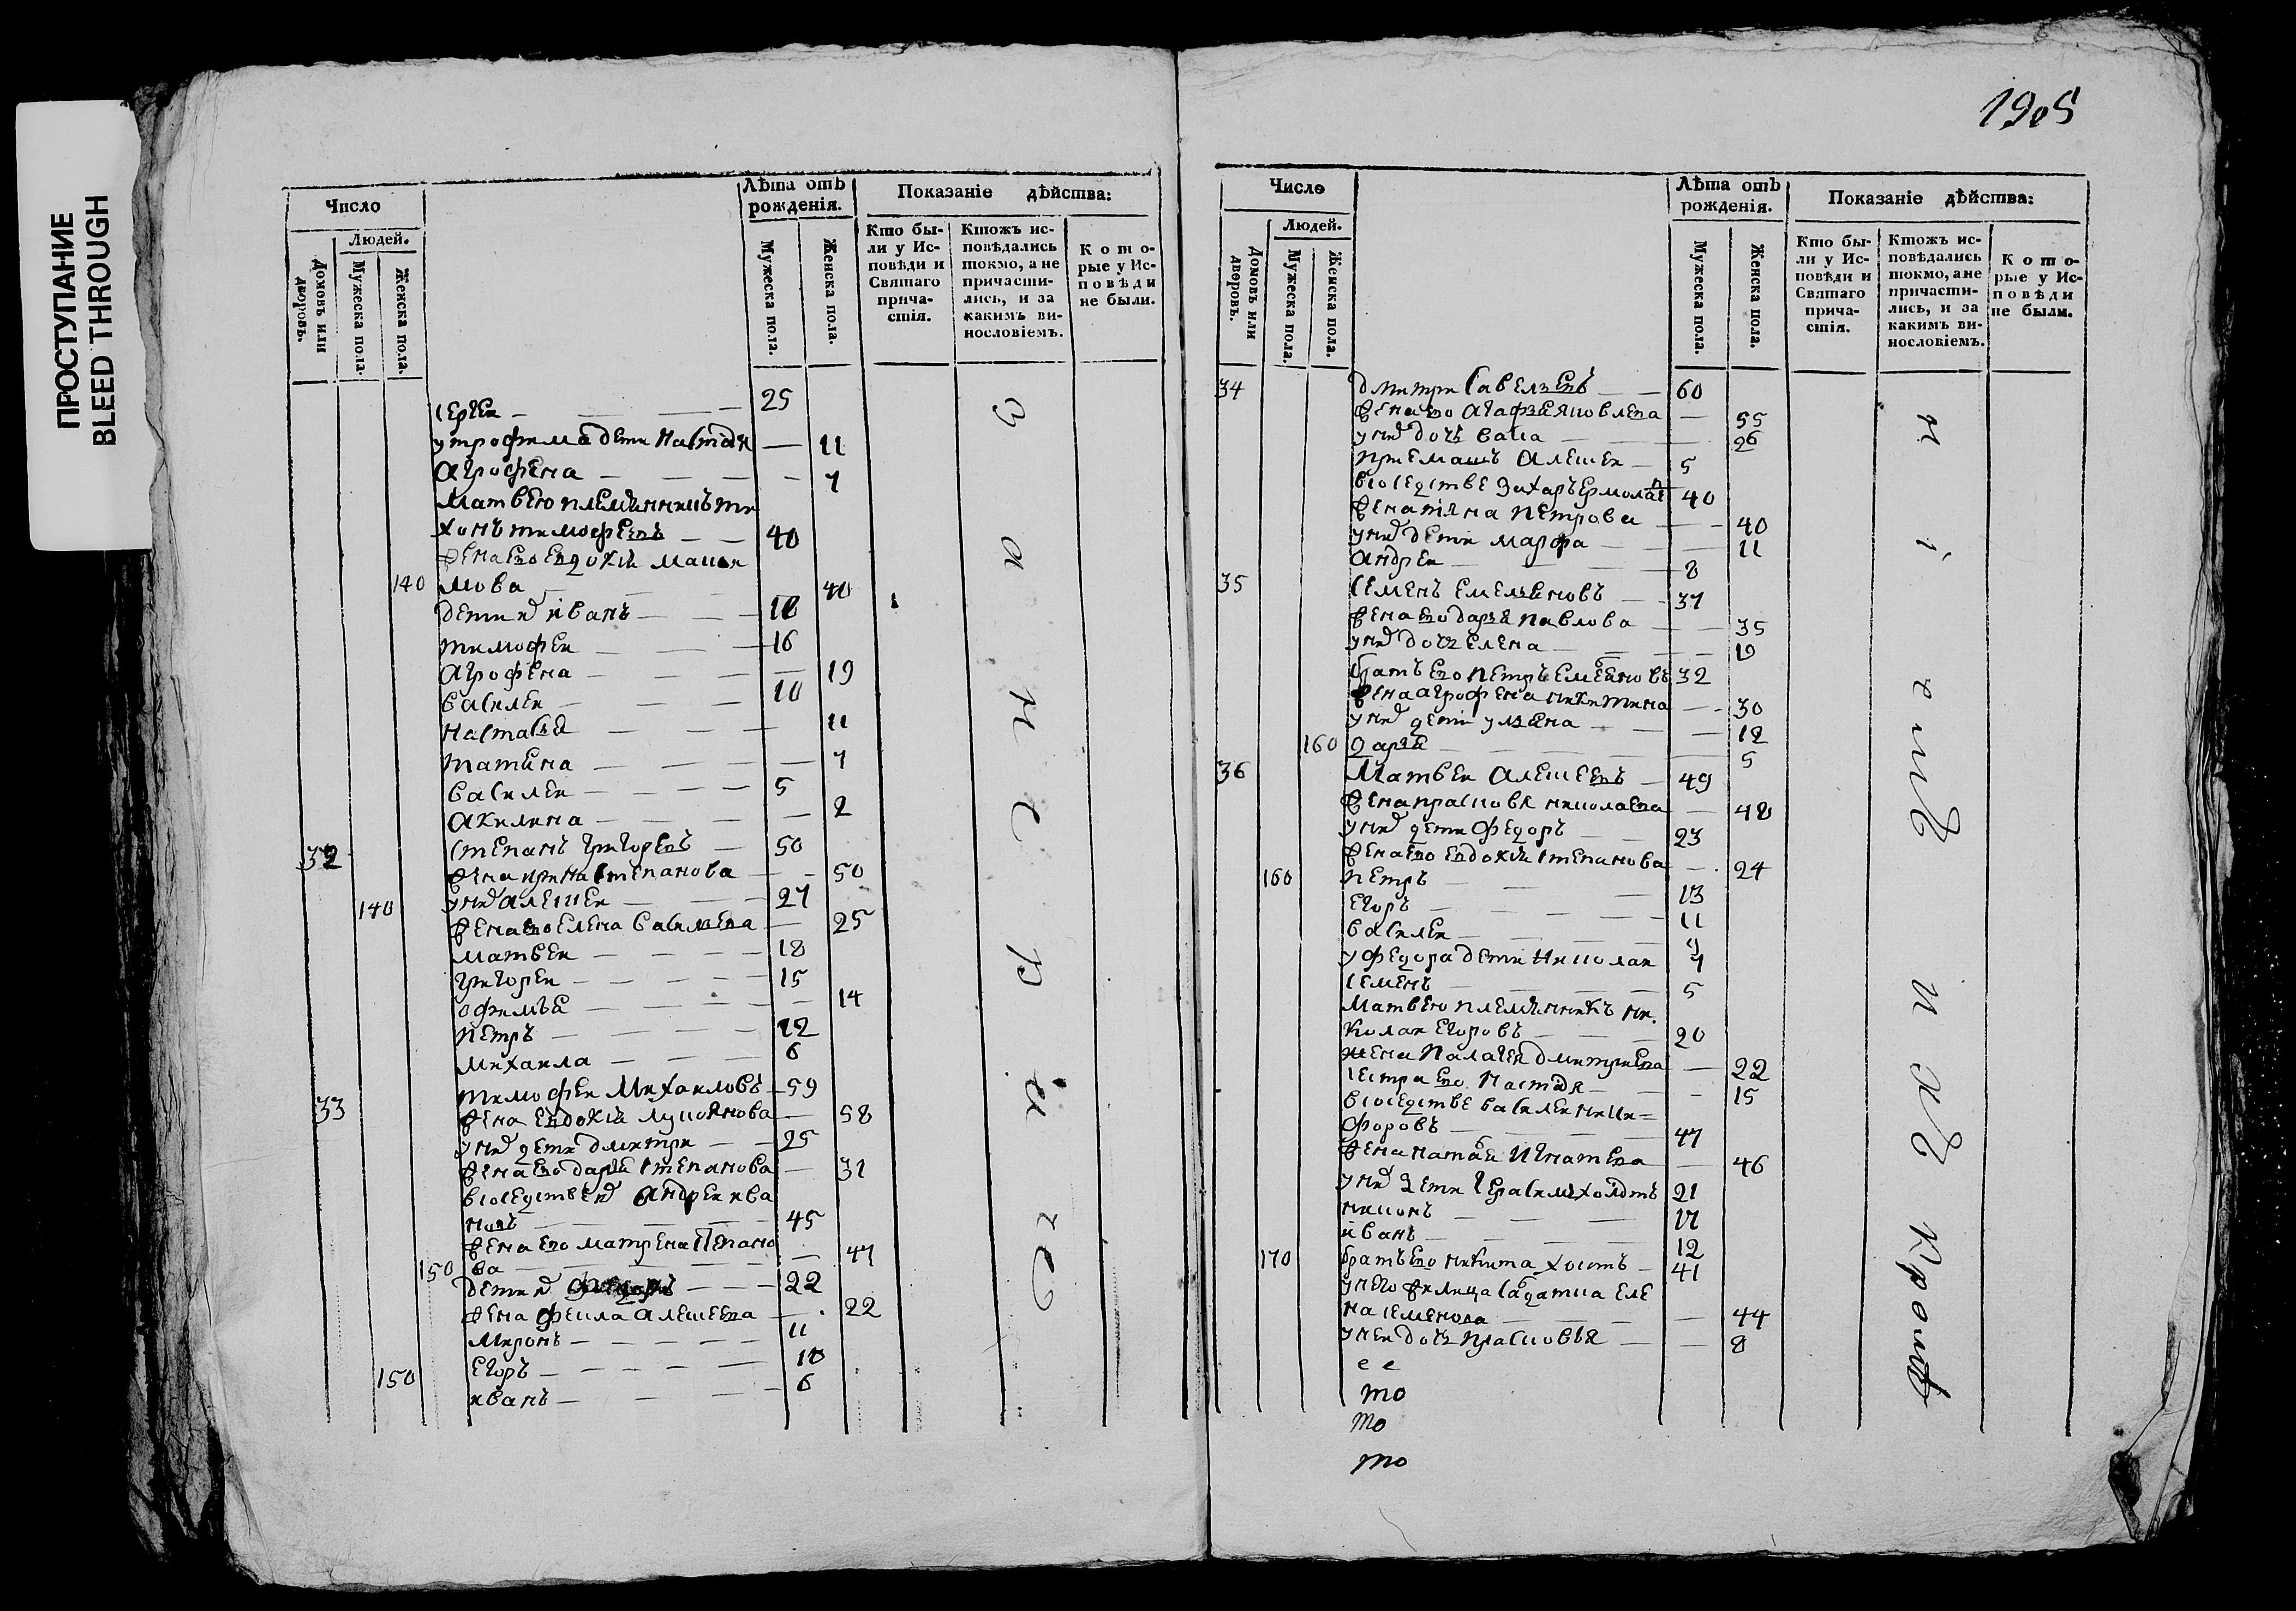 ПРОСТУПАНИЕ
BLEED THROUGH
1905
Число
Людей.
Домовъ или дворовъ.
Мужеска пола.
Женска пола.
Лѣта отъ рожденія.
Мужеска пола.
Женска пола.
Показаніе дѣйства:
Кто были у Исповѣди и Святаго причастія.
Ктожъ исповѣдались токмо, а не причастились, и за какимъ винословіемъ.
Которые у Исповѣди не были.
Сергеи 25
у трофима дети Настая 11
Агрофена 7
Матвею племянникъ ти
хонъ тимофеевъ 40
жена ево Евдокия
140 мова 40
дети их иванъ 18
тимофеи 16
Агрофена 19
Василеи 10
Настасья 11
татияна 7
Василеи 5
Акилина 2
32 Степанъ Григоревъ 50
жена ирина Степанова 50
140 у них Алексеи 27
жена ево Елена Василева 25
Матвеи 18
Григореи 15
офимья 14
Петръ 12
Михаила 6
33 тимофеи Михаиловъ 59
жена Евдокия Лукоянова 58
у них дети дмитри 25
жена ево дарья Степанова 31
в соседстве их Андреи ива
новъ 45
жена ево матрена Степано
150 ва 47
дети их 22
жена фекла алексеева 22
Миронъ 11
150 Егоръ 10
иванъ 6
за не с р ѣ че
Число
Людей.
Домовъ или дворовъ.
Мужеска пола.
Женска пола.
Лѣта отъ рожденія.
Мужеска пола.
Женска пола.
Показаніе дѣйства:
Кто были у Исповѣди и Святаго причастія.
Ктожъ исповѣдались токмо, а не причастились, и за какимъ винословіемъ.
Которые у Исповѣди не были.
34 дмитри Савельевъ 60
жена ево Агафья яковлева 55
у них дочь васа 26
приемашъ Алексеи 5
в соседстве Захаръ Ермолае 40
жена тяна Петрова 40
у них дети марфа 11
Андреи 8
35 Семенъ Емельяновъ 37
жена ево дарья павлова 35
у них дочь Елена 19
братъ ево Петръ Емеляновъ 32
жена агрофена никитина 30
у них дети ульяна 12
160 дарья 5
36 Матвеи Алексеевъ 49
жена прасковя николаева 48
у них дети Федоръ 23
жена ево Евдокия Степанова 24
160 Петръ 13
Егоръ 11
Василеи 9
у Федора дети Николаи 7
Семенъ 5
Матвею племянникъ ни
колаи Егоровъ 20
жена Палагея дмитриева 22
сестра ево Настая 15
в соседстве василеи ники=
форовъ 47
жена наталя Игнатева 46
у них дети Герасимъ холостъ 21
никонъ 17
иванъ 12
170 братъ ево никита холостъ 41
у него жилица салдатка еле
на семенова 44
у неи дочь прасковья 8
е е
то
то
то
н і е мъ и хъ кромѣ